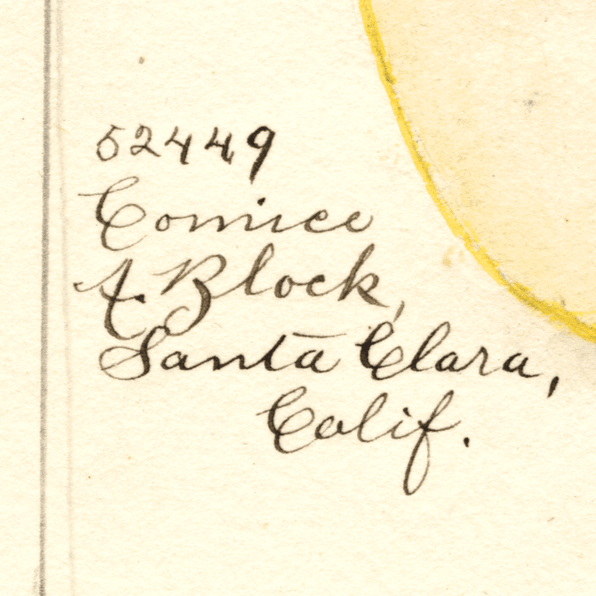 52449
Comice
A. Block,
Santa Clara,
Calif.